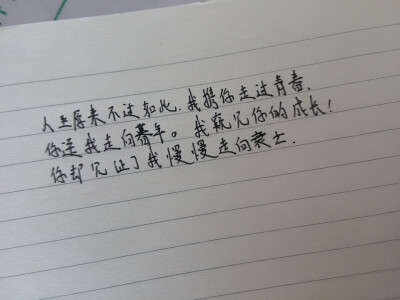 人生原来不过如此.我携你走过青春.
你送我走向暮年。我窥见你的成长!
你却见证了我慢慢走向衰亡.